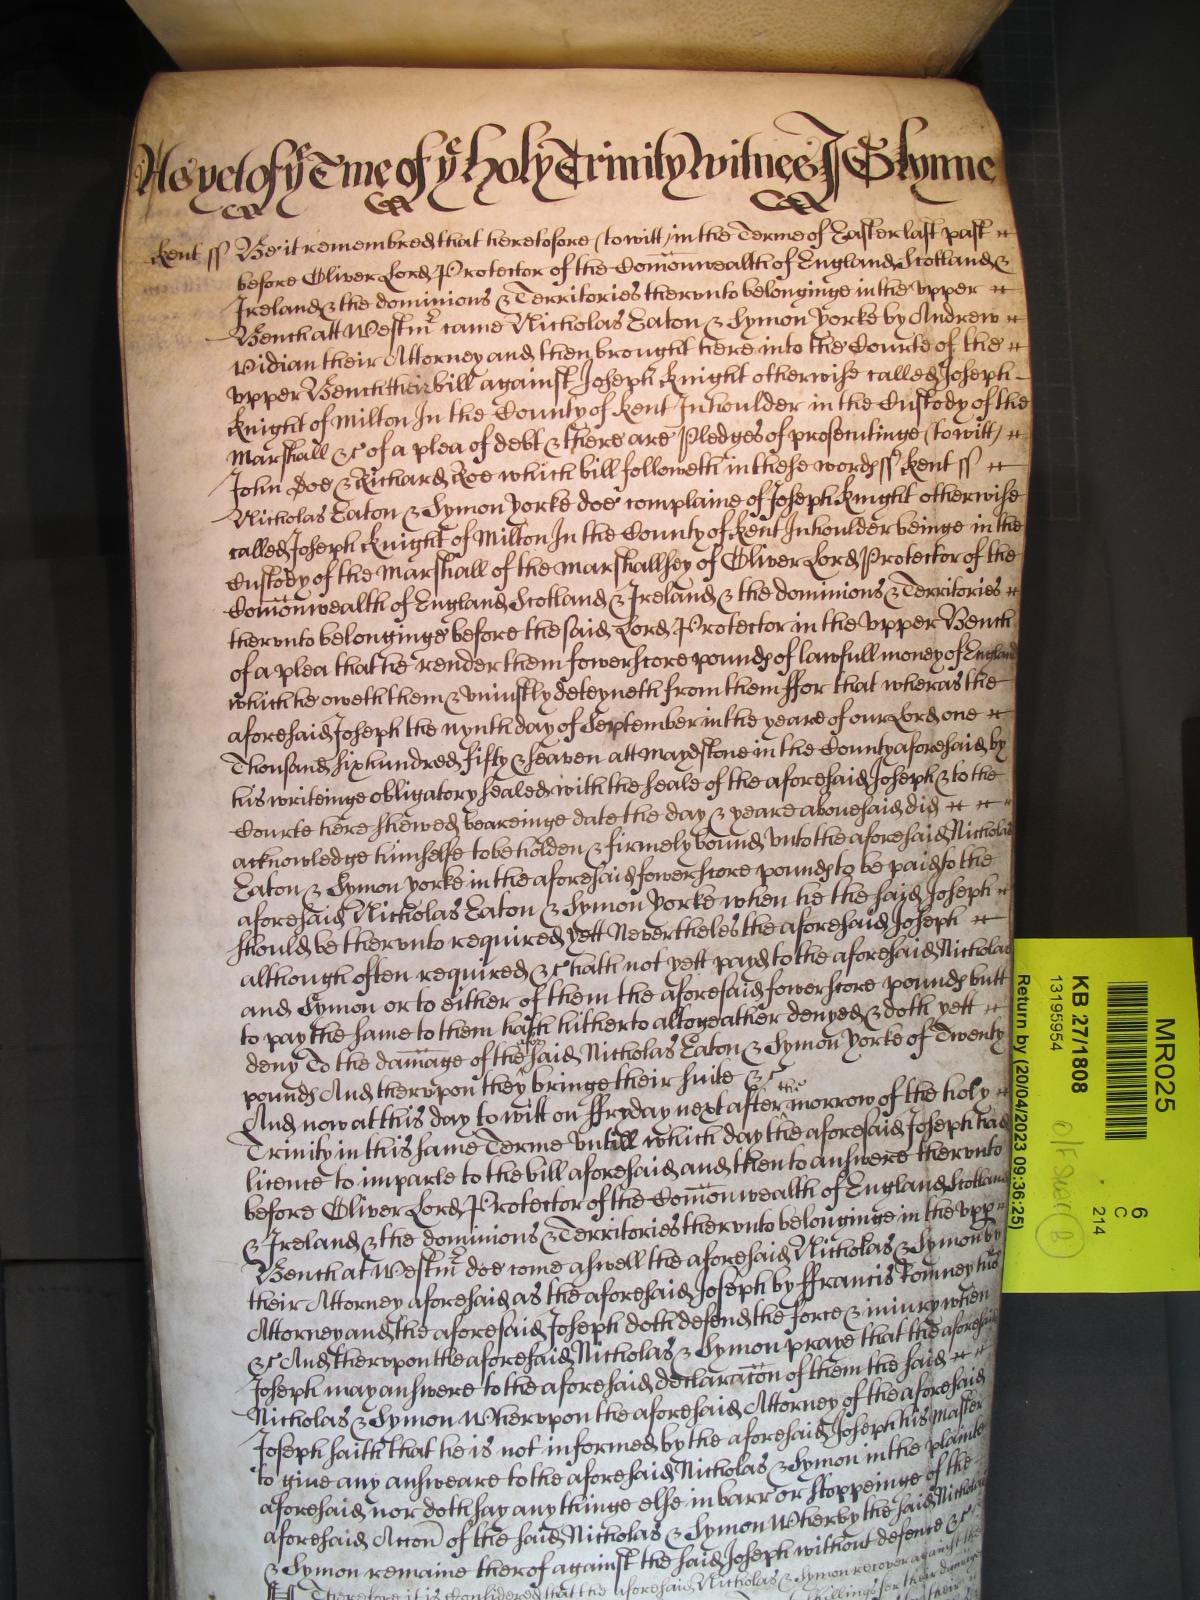 As yet of ye Tme of ye Holy Trinity Witnes J Glynne
Kent ss Be it remembred that heretofore (to witt) in the Terme of Easter last past
before Oliver Lord Protector of the Comonwealth of England Scotland &
Ireland & the dominions & Territories thervnto belonginge in the vpper
Bench att Westmr came Nicholas Eaton & Symon Yorke by Andrew
Vidian their Attorney and then brought here into the Courte of the
vpper Bench their bill against Joseph Knight otherwise called Joseph
Knight of Milton In the County of Kent Inhoulder in the Custody of the
Marshall &c of a plea of debt & there are Pledges of prosecutinge (to witt)
John Doe & Richard Roe which bill followeth in these words ss Kent ss
Nicholas Eaton & Symon Yorke doe complaine of Joseph Knight otherwise
called Joseph Knight of Milton In the County of Kent Inhoulder beinge in the
Custody of the Marshall of the Marshallsey of Oliver Lord Protector of the
Comonwealth of England Scotland & Ireland & the dominions & Territories
thervnto belonginge before the said Lord Protector in the vpper Bench
of a plea that he render them fower score pounds of lawfull money of England
which he oweth them & vniustly deteyneth from them ffor that wheras the
aforesaid Joseph the nynth day of September in the yeare of our Lord one
Thousand six hundred fifty & seaven att Maydstone in the County aforesaid by
his writeinge obligatory sealed with the seale of the aforesaid Joseph & to the
Courte here shewed beareinge date the day & yeare abouesaid did
acknowledge himselfe to be holden & firmely bound vnto the aforesaid Nicholas
Eaton & Symon Yorke in the aforesaid fower score pounds to be paid to the
aforesaid Nicholas Eaton & Symon Yorke when he the said Joseph
should be thervnto required yett Nevertheles the aforesaid Joseph
although often required &c hath not yett payd to the aforesaid Nicholas
and Symon or to either of them the aforesaid fower score pounds butt
to pay the same to them hath hitherto altogeather denyed & doth yett
deny To the damage of the said Nicholas Eaton & Symon Yorke of Twenty
pounds And thervpon they bringe their suite &c
And now at this day to witt on ffryday next after the morrow of the holy
Trinity in this same Terme vntill which day the aforesaid Joseph had
licence to imparle to the bill aforesaid and then to answere thervnto
before Oliver Lord Protector of the Comonwealth of England Scotland
& Ireland & the dominions & Territories thervnto belonginge in the vpp
Bench at Westmr doe come aswell the aforesaid Nicholas & Symon by
their Attorney aforesaid as the aforesaid Joseph by ffrancis Tomney his
Attorney and the aforesaid Joseph doth defend the force & iniury when
&c And thervpon the aforesaid Nicholas & Symon praye that the aforesaid
Joseph may answere to the aforesaid declaracon of them the said
Nicholas & Symon Whervpon the aforesaid Attorney of the aforesaid
Joseph saith that he is not informed by the aforesaid Joseph his master
to giue any answeare to the aforesaid Nicholas & Symon in the plainte
aforesaid nor doth say any thinge else in barr or stoppeinge of the
aforesaid Accon of the said Nicholas & Symon Wherby the said Nicholas
& Symon remaine therof against the said Joseph without defence &c
Therefore it is Considered that the aforesaid Nicholas & Symon recover against the
shillings for their damages
MR025
6
C
214
KB 27/1808
13195954
Return by (20/04/2023 09:36:25)